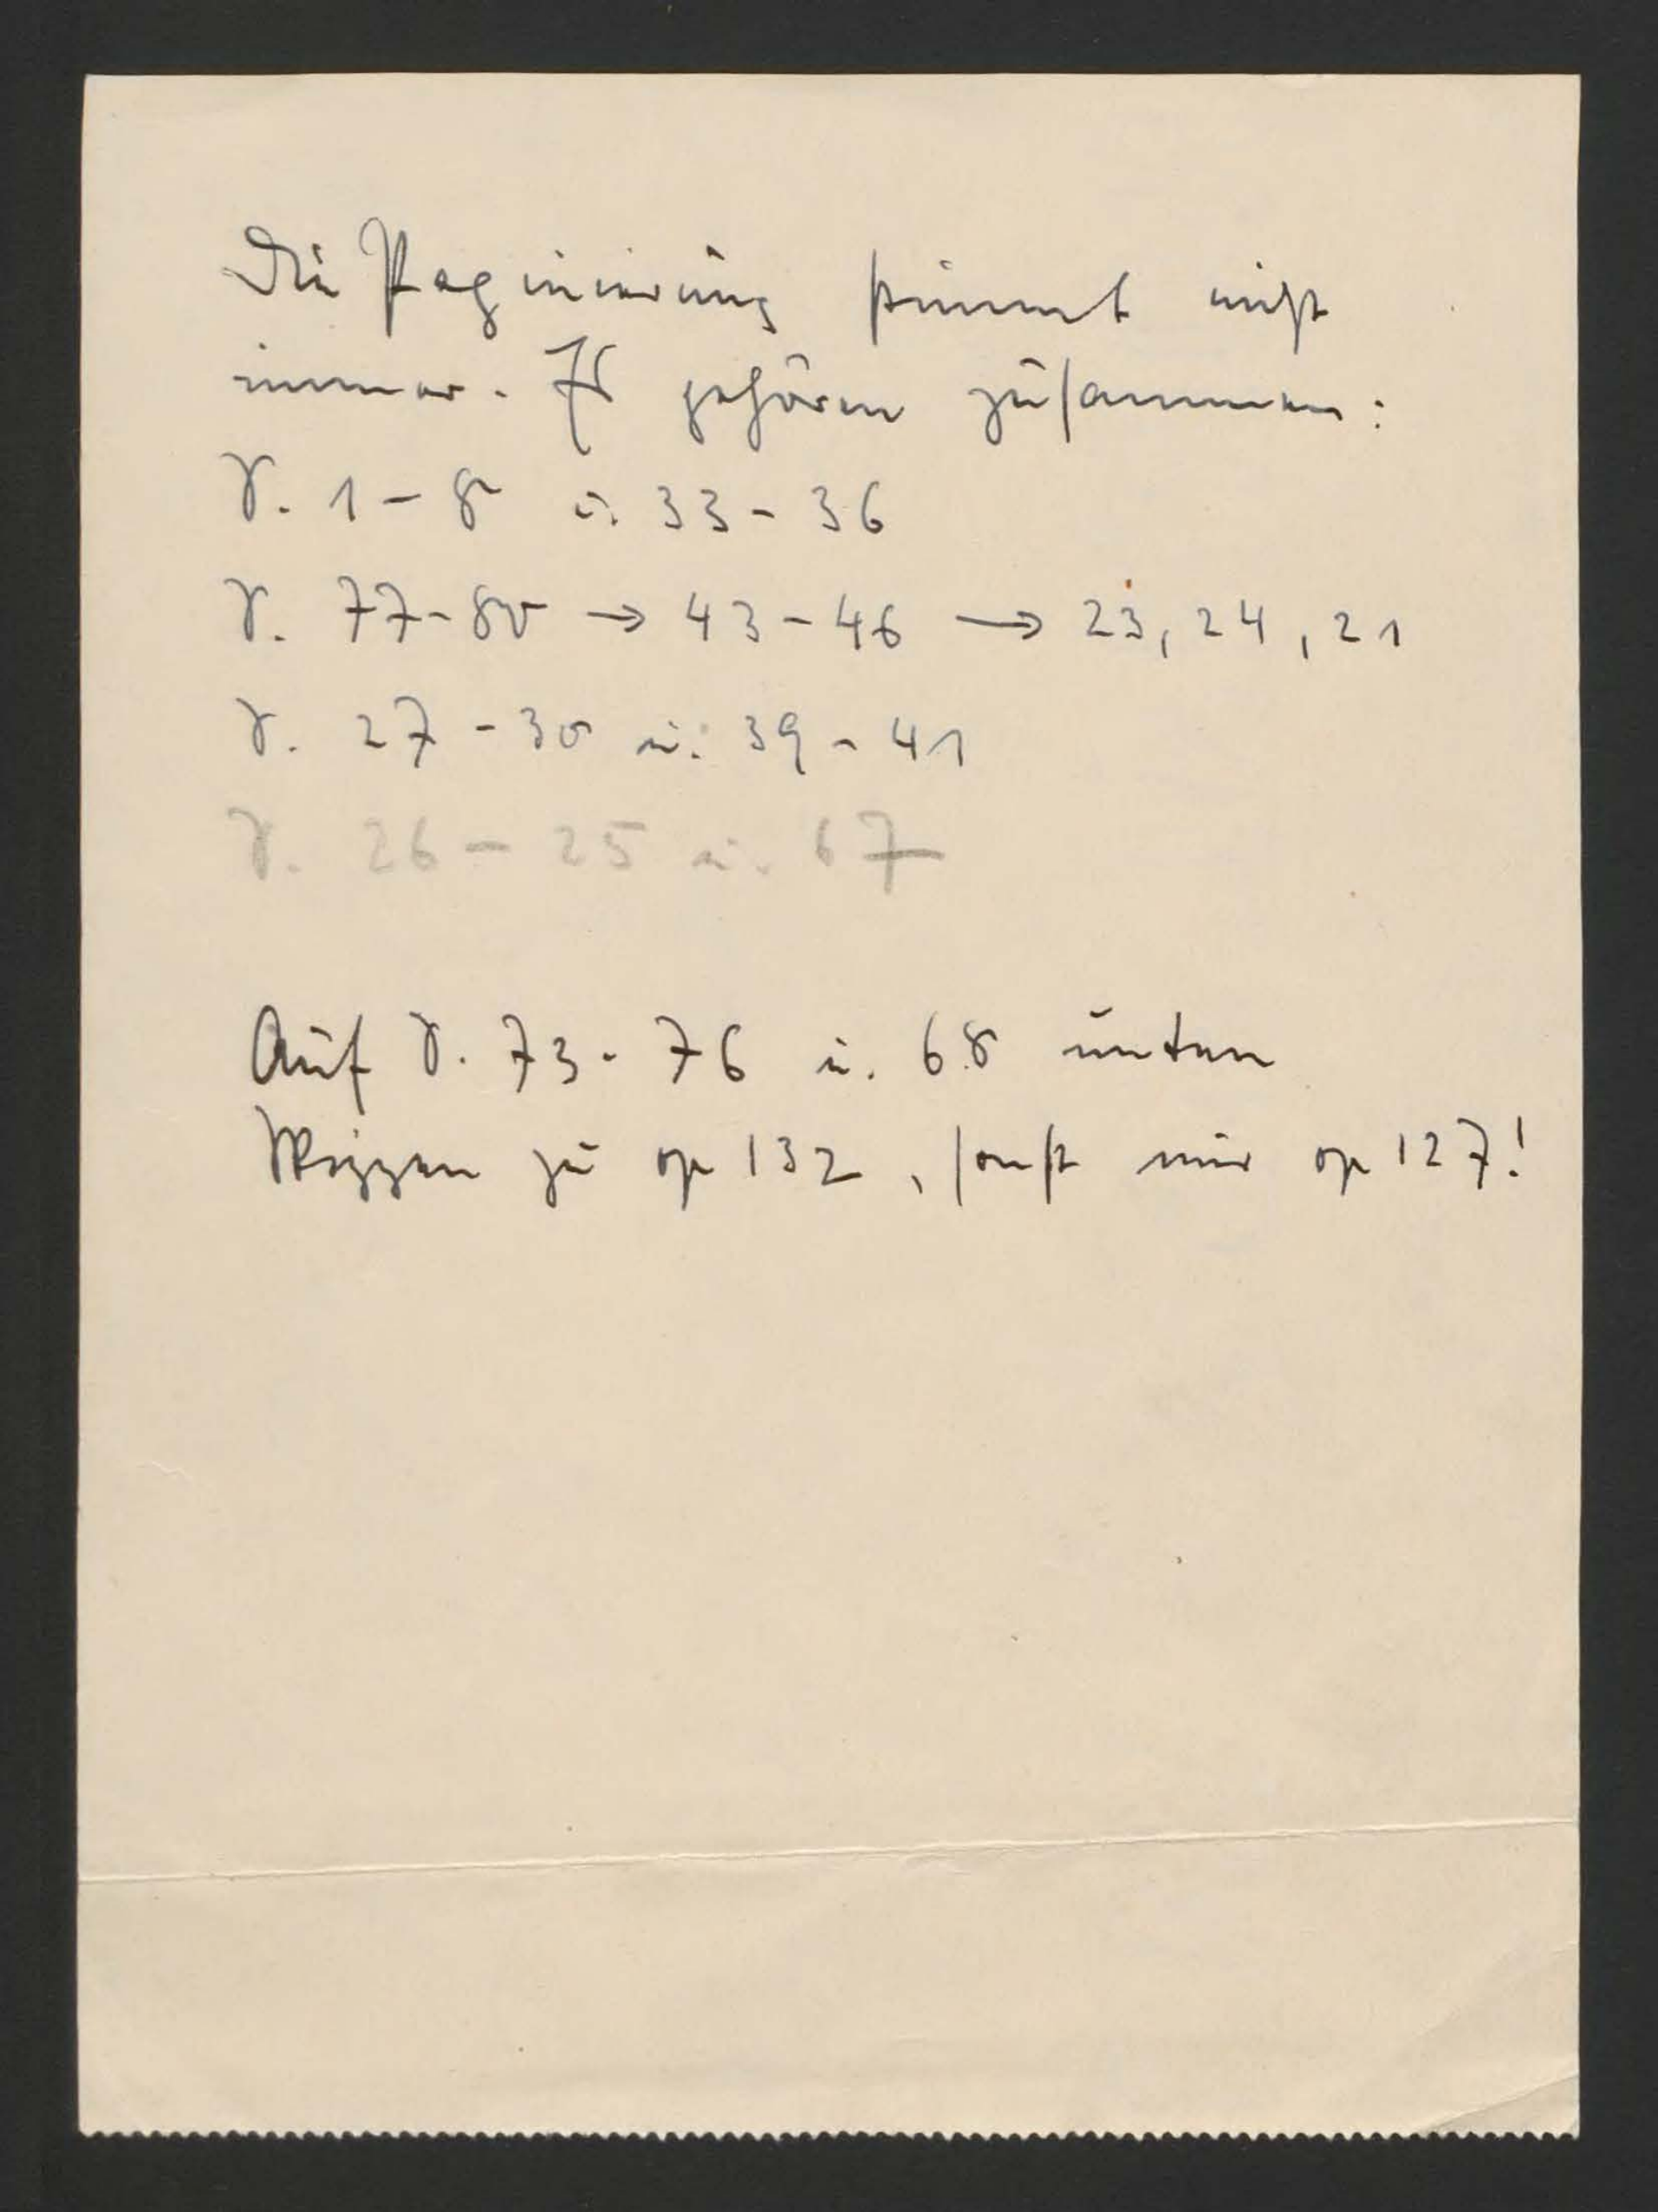 Die Paginierung stimmt nicht
immer. Es gehören zusammen:
S. 1 – 8 u. 33 – 36
S. 77 – 80 → 43 – 46 → 23, 24, 21
S. 27 – 30 u. 39 – 41
S. 26 – 25 u. 67
Auf S. 73 - 76 u. 68 unten
Skizzen zu op 132, sonst nur op 127!